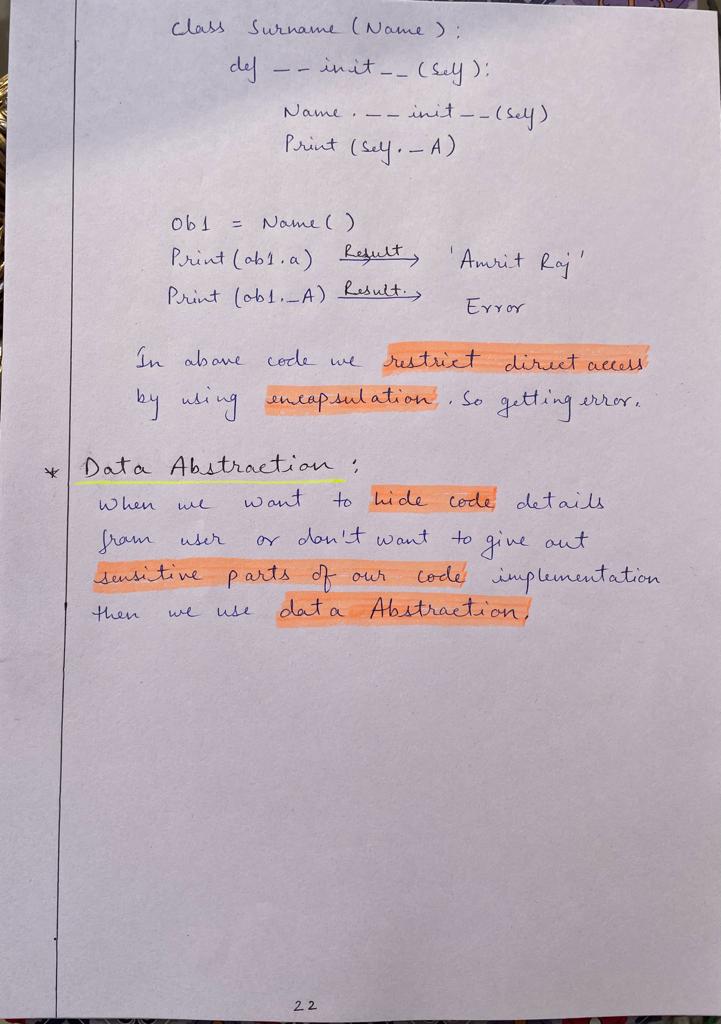 class Surname (Name):
def __init__(self):
Name.__init__(self)
Print (self._A)
Ob1 = Name()
Print (ob1.a) Result → 'Amrit Raj'
Print (ob1._A) Result. → Error
In above code we restrict direct access
by using encapsulation. So getting error.
* Data Abstraction:
When we want to hide code details
from user or don't want to give out
sensitive parts of our code implementation
then we use data Abstraction.
22